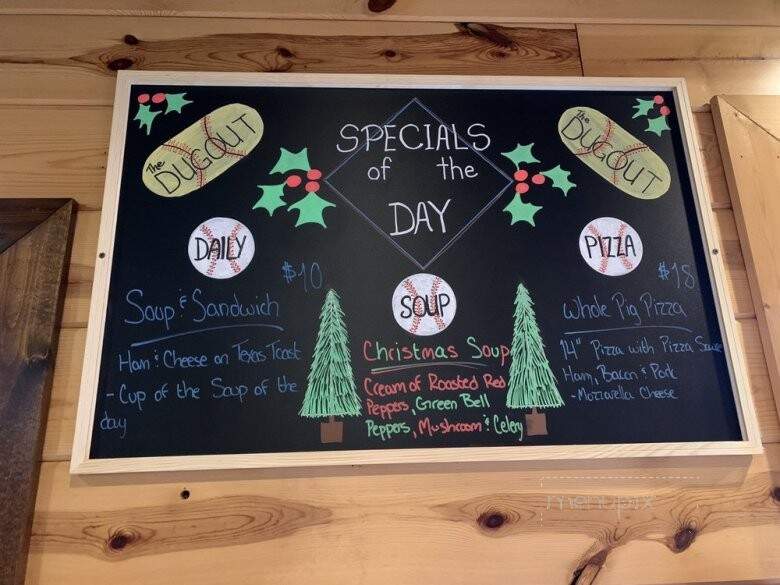 The
DUGOUT
SPECIALS
of the
DAY
The
DUGOUT
DAILY
$10
Soup & Sandwich
Ham & Cheese on Texas Toast
- Cup of the Soup of the
day
SOUP
Christmas Soup
Cream of Roasted Red
Peppers, Green Bell
Peppers, Mushroom & Celery
PIZZA
$18
Whole Pig Pizza
14" Pizza with Pizza Sauce
Ham, Bacon & Pork
- Mozzarella Cheese
menupix